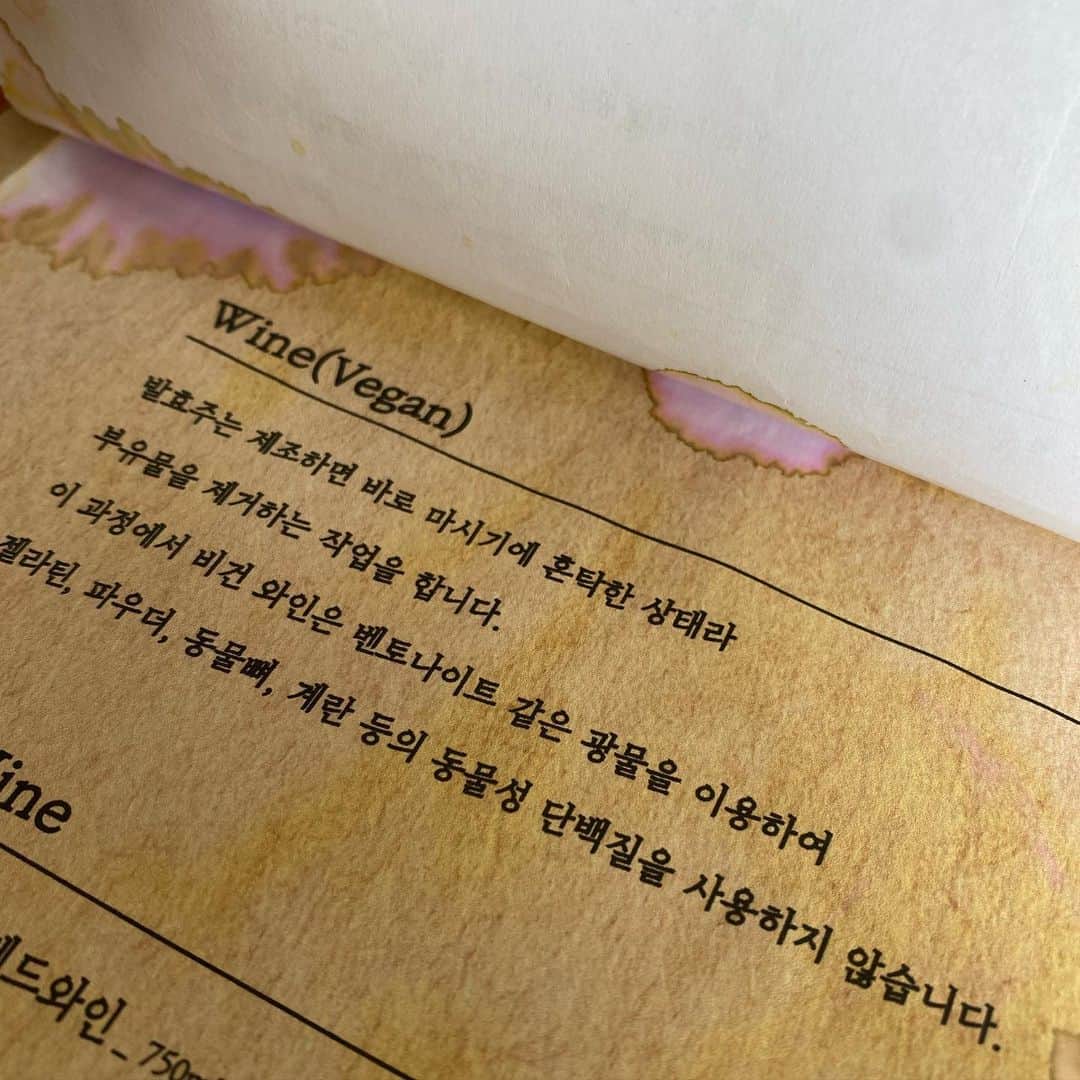 Wine(Vegan)
발효주는 제조하면 바로 마시기에 혼탁한 상태라
부유물을 제거하는 작업을 합니다.
이 과정에서 비건 와인은 벤토나이트 같은 광물을 이용하여
젤라틴, 파우더, 동물뼈, 계란 등의 동물성 단백질을 사용하지 않습니다.
Wine
레드와인_ 750ml